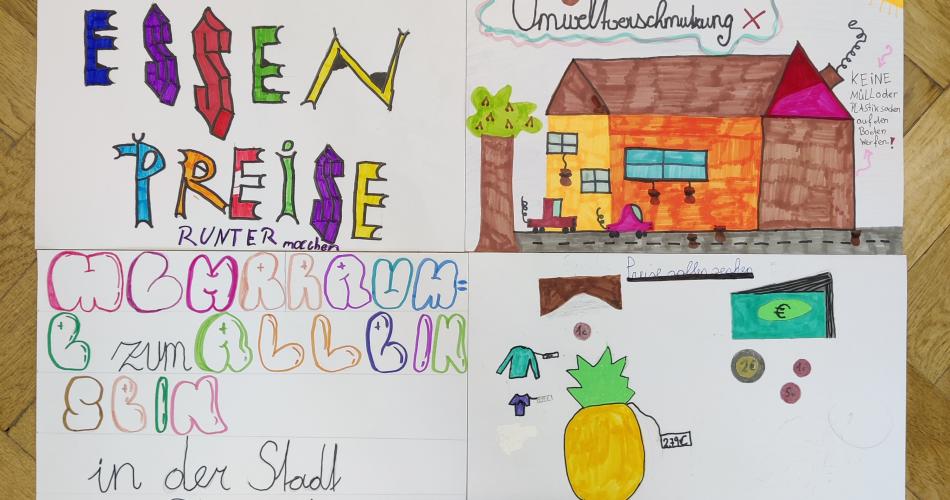 ESSEN
PREISE
RUNTER machen
Umweltverschmutzung X
KEINE
MÜLL oder
PLastiksachen
auf den
Boden
Werfen!
MEHR RAUM=
E zum ALLEIN
SEIN
in der Stadt
Preise sollen senken
€
1c
2€
1c
5c
2,79€